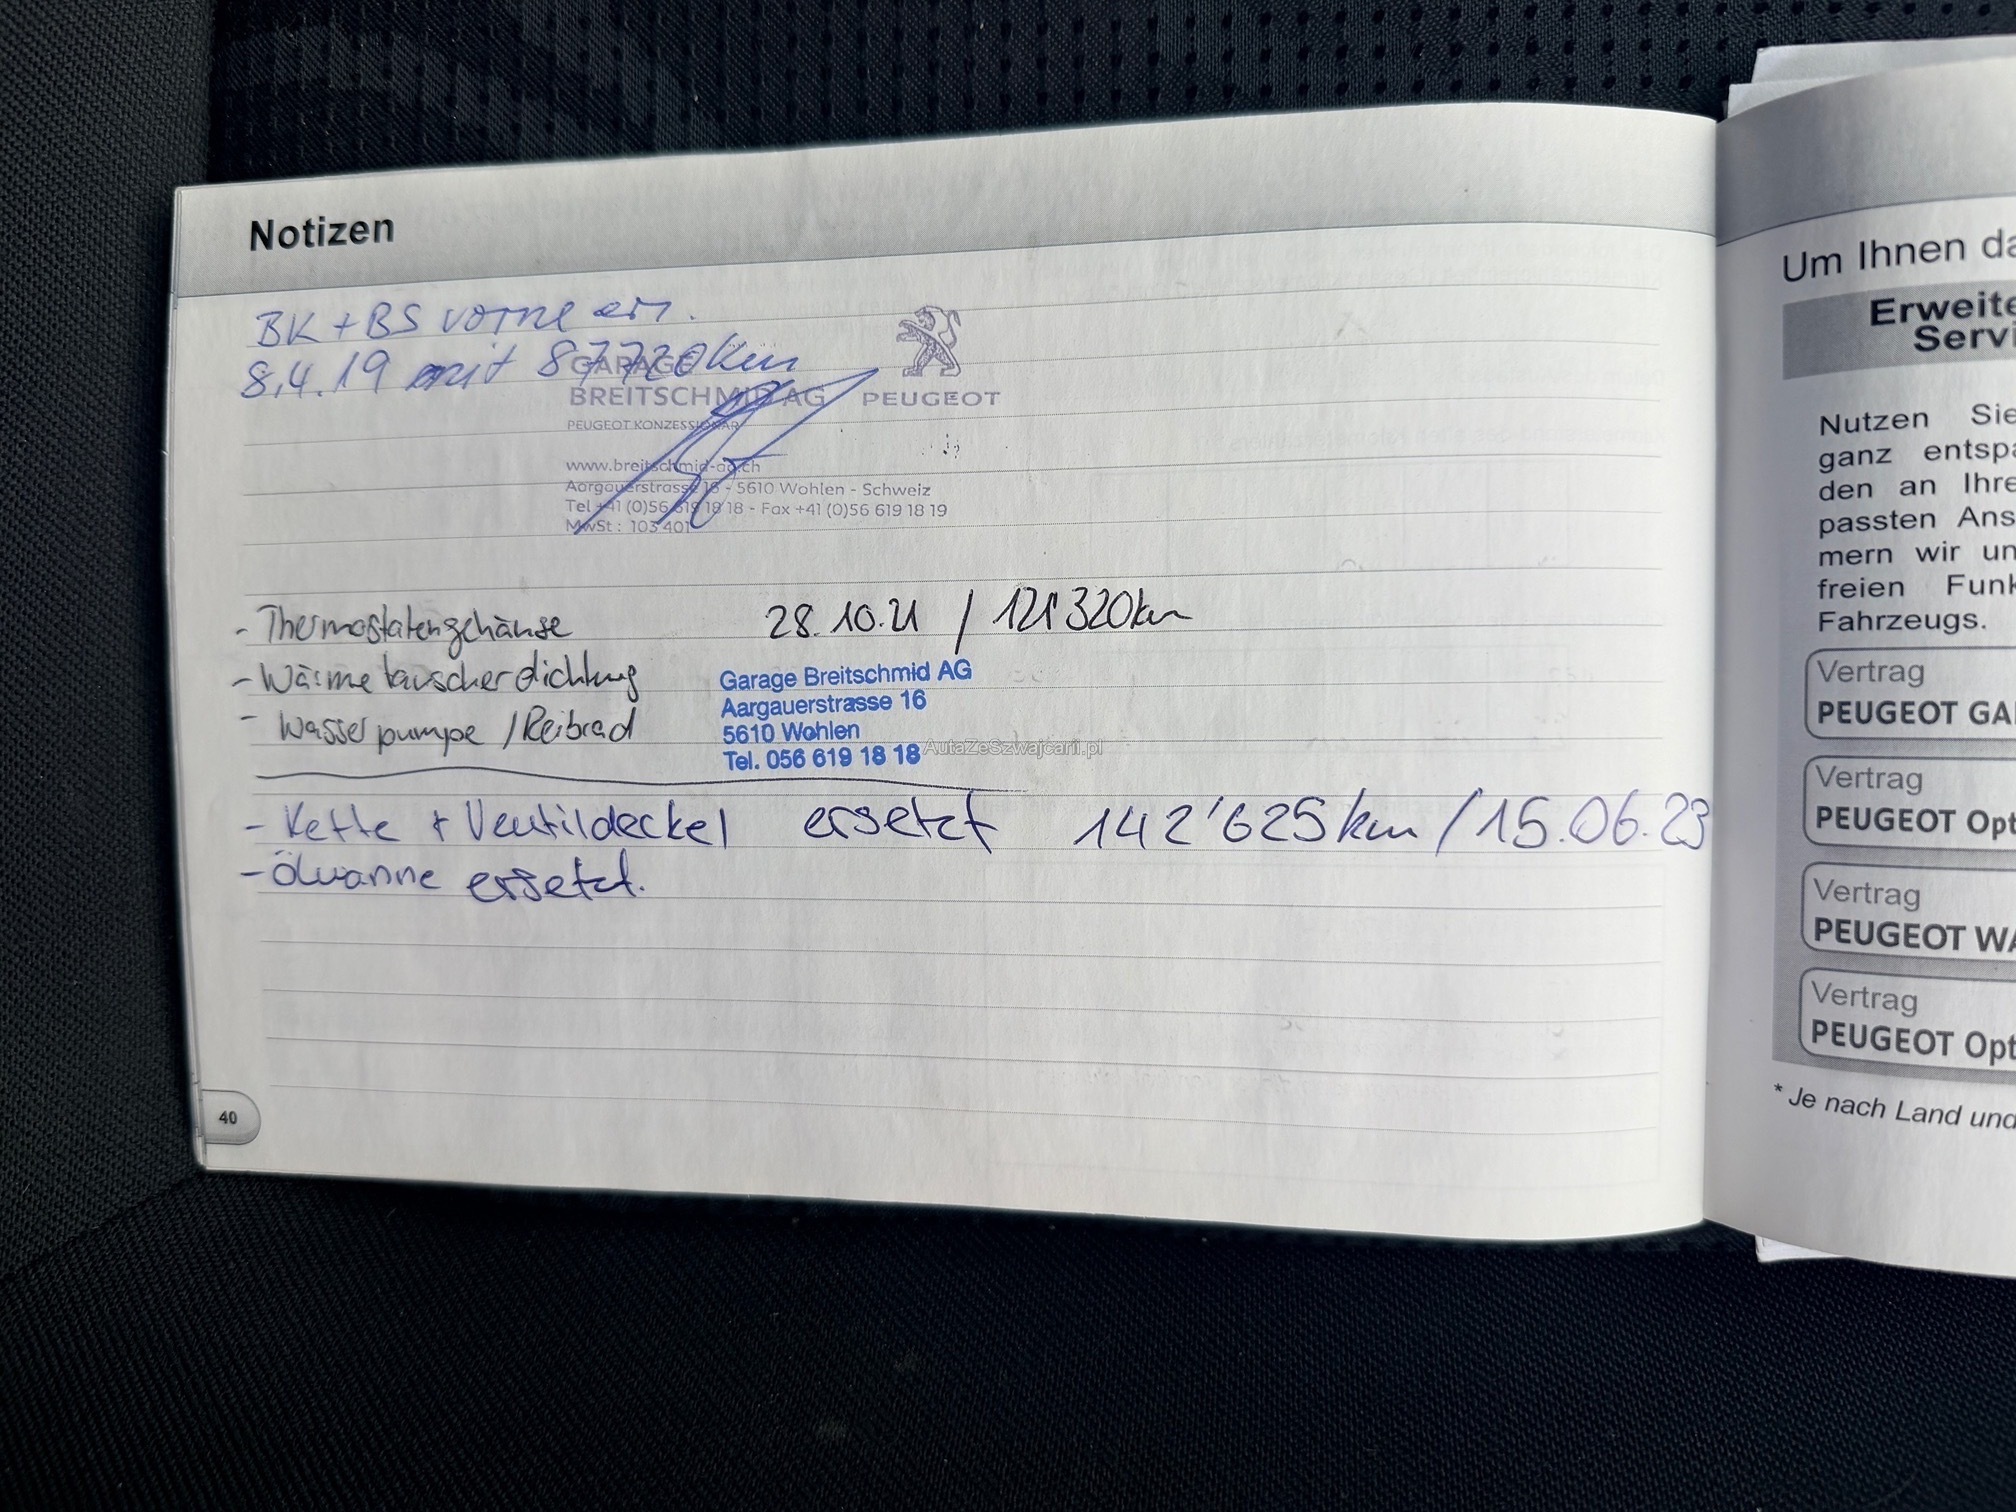 Notizen
BK + BS vorne ern.
8.4.19 mit 87720km
GARAGE
BREITSCHMID AG
PEUGEOT
PEUGEOT KONZESSIONÄR
www.breitschmid-ag.ch
Aargauerstrasse 16 - 5610 Wohlen - Schweiz
Tel +41 (0)56 619 18 18 - Fax +41 (0)56 619 18 19
MwSt : 103 401
- Thermostatengehäuse 28.10.21 / 121320km
- Wärmetauscherdichtung
- Wasserpumpe / Reibrad
Garage Breitschmid AG
Aargauerstrasse 16
5610 Wohlen
Tel. 056 619 18 18
AutaZeSzwajcarii.pl
- Kette + Ventildeckel ersetzt 142'625km / 15.06.23
- Ölwanne ersetzt.
40
Um Ihnen da
Erweite
Servi
Nutzen Sie
ganz entspa
den an Ihre
passten Ans
mern wir un
freien Funk
Fahrzeugs.
Vertrag
PEUGEOT GA
Vertrag
PEUGEOT Opt
Vertrag
PEUGEOT WA
Vertrag
PEUGEOT Opt
* Je nach Land und